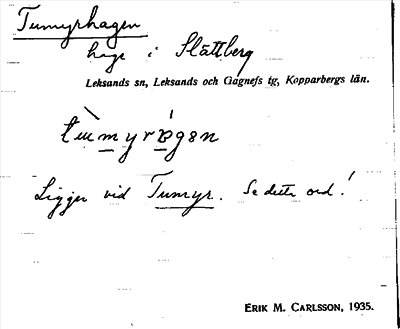 Tumyrhagen
hage i Slättberg
Leksands sn, Leksands och Gagnefs tg, Kopparbergs län.
Ligger vid Tumyr. Se detta ord!
ERIK M. CARLSSON, 1935.